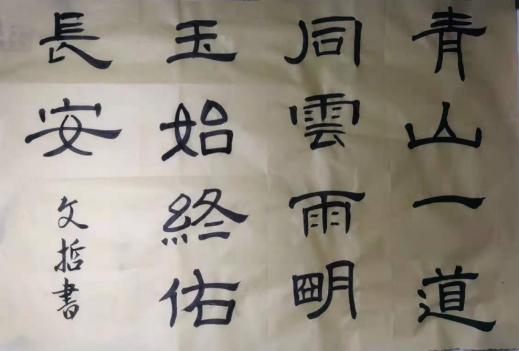 青山一道
同雲雨明
玉始終佑
長安
文哲書